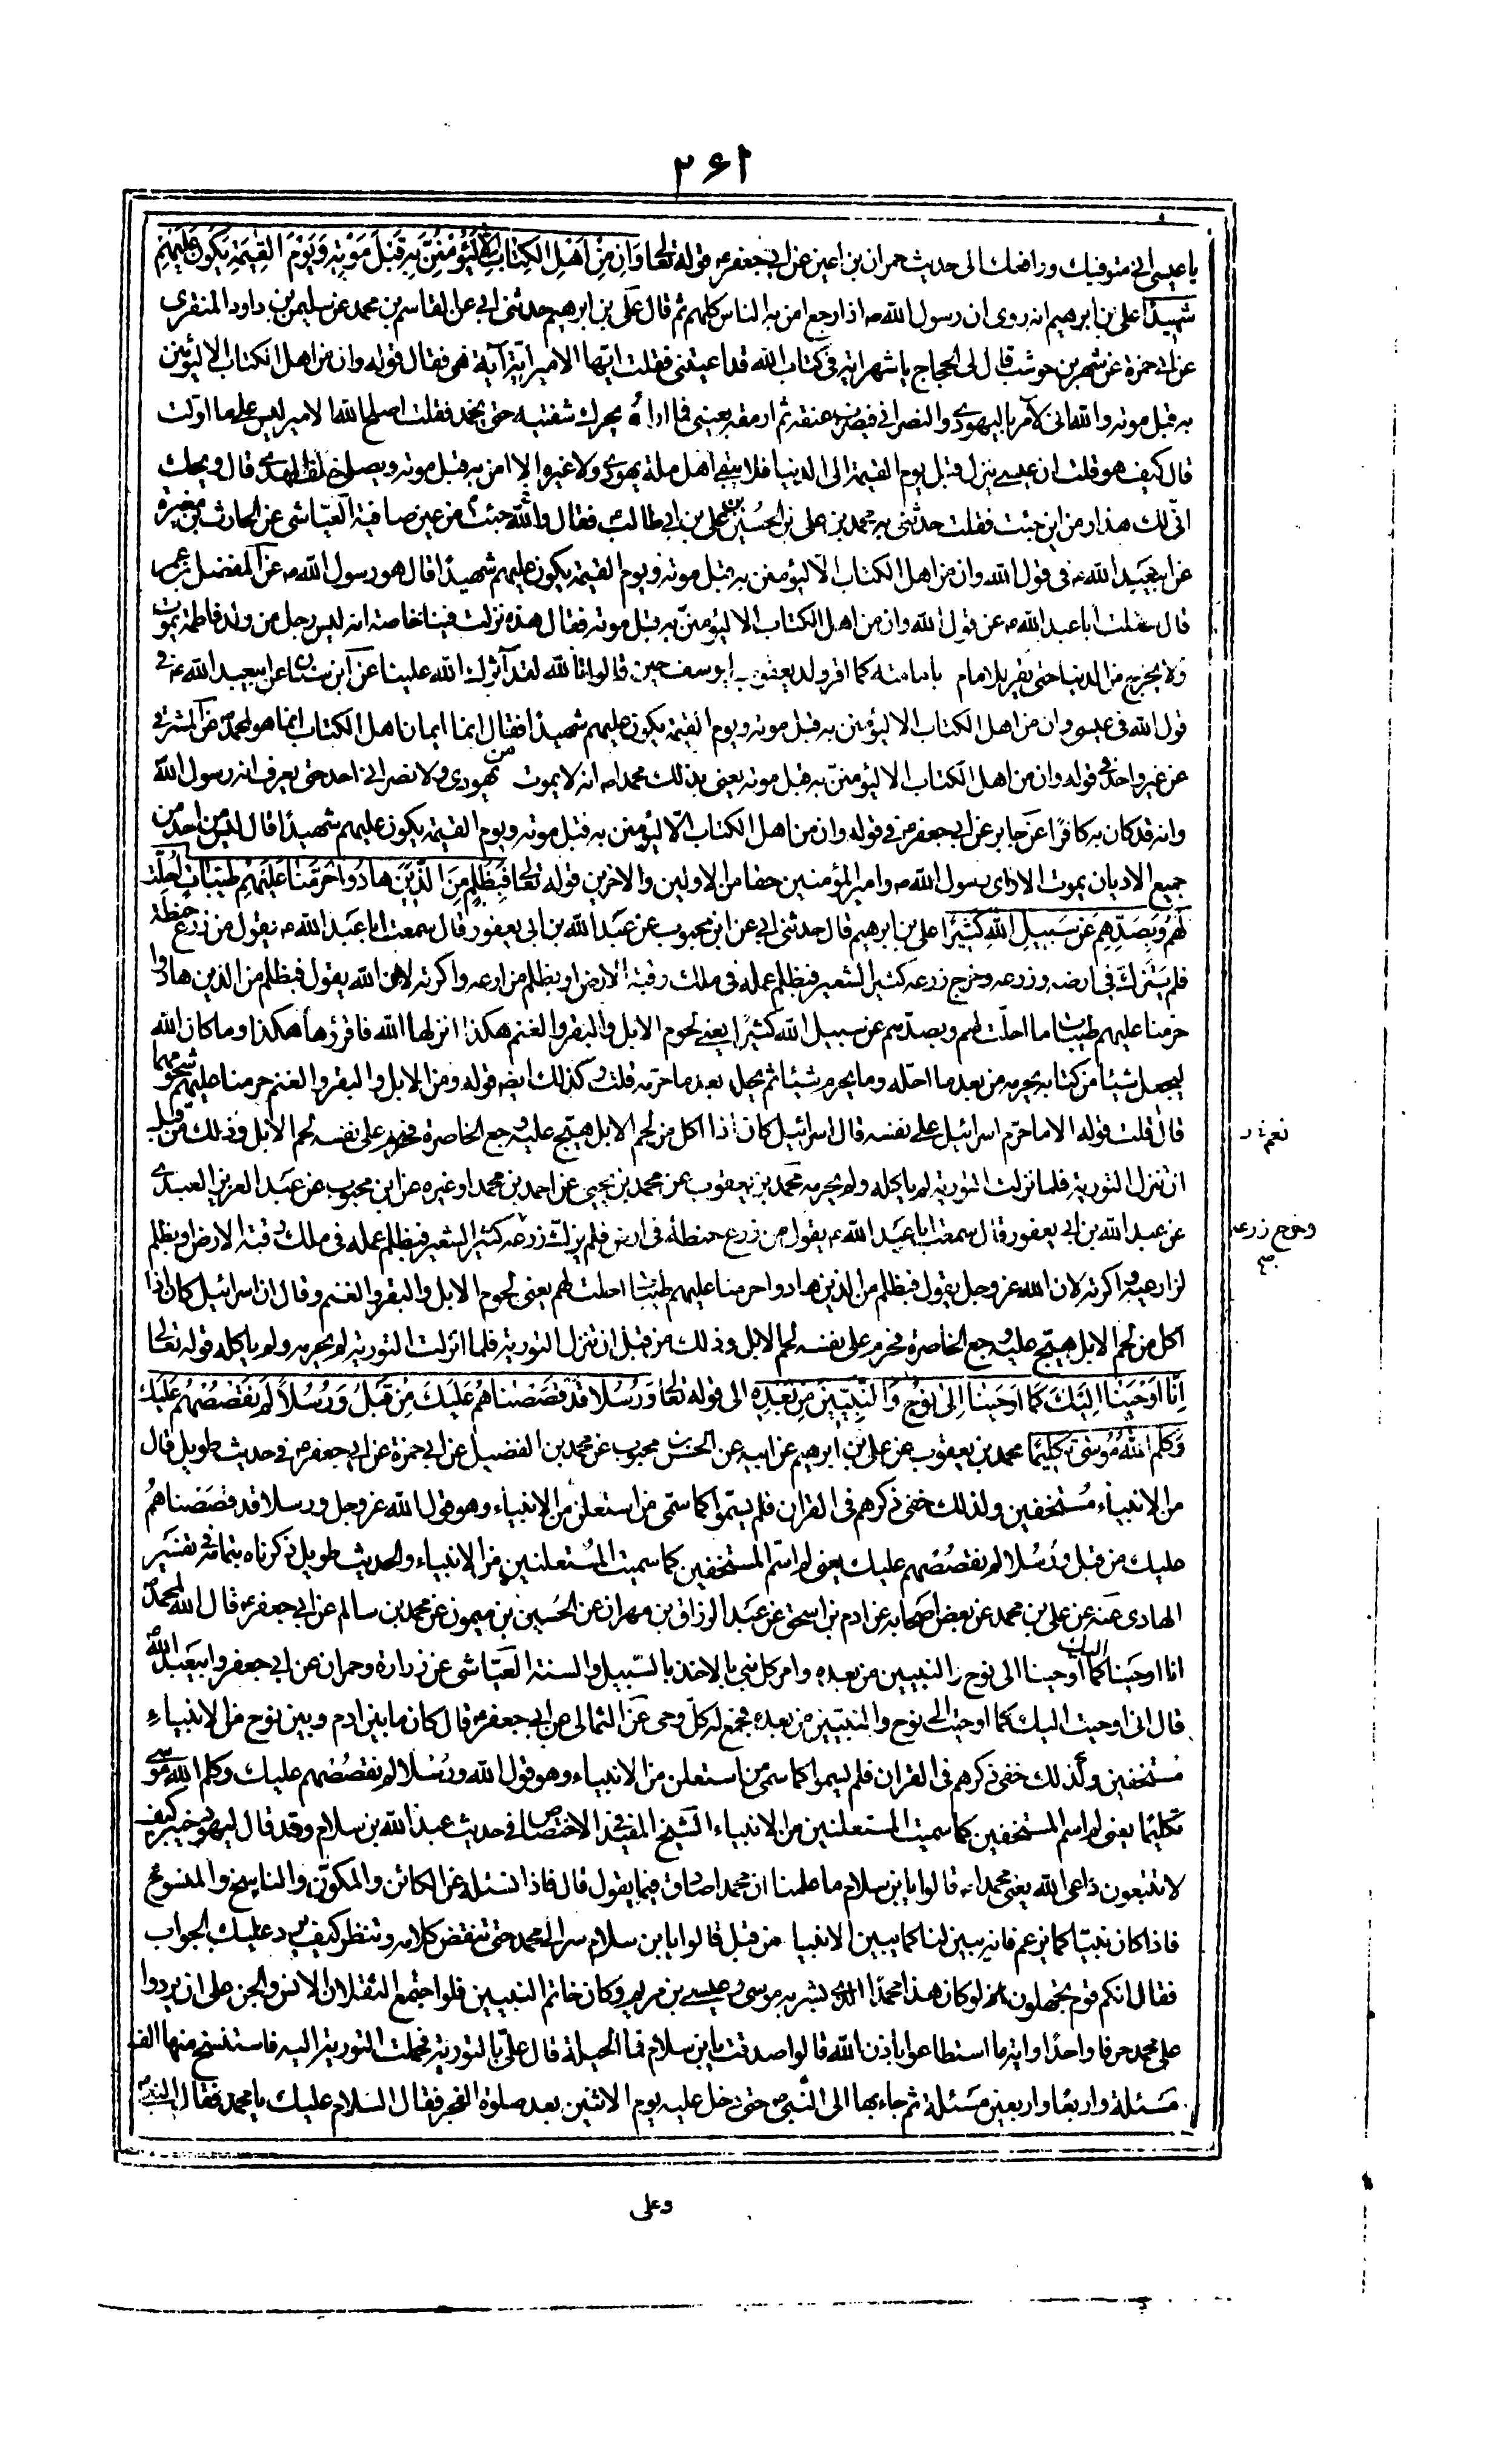 ٢٦١
يا عيسى انى متوفيك ورافعك الى حديث حمران بن اعين عن ابى جعفر ع قوله تعالى وَاِن مِنْ اَهْلِ الكِتابِ اِلّا لَيُؤْمِنَنَّ بِهِ قَبْلَ مَوْتِهِ وَيَوْمَ القِيٰمَةِ يَكُونُ عَلَيْهِمْ
شَهيدًا على بن ابرهيم انه روى ان رسول الله ص اذا رجع امن به الناس كلهم ثم قال على بن ابرهيم حدثنى ابى عن القاسم بن محمد عن سليمن بن داود المنقرى
عن ابى حمزة عن شهر بن حوشب قال لى الحجاج يا شهر اية فى كتاب الله قد اعيتنى فقلت ايها الامير اية آية هى فقال قوله وان من اهل الكتاب الا ليؤمنن
به قبل موته والله انى لآمر باليهودى والنصرانى فيضرب عنقه ثم ارمقه بعينى فما اراه يحرك شفتيه حتى يخمد فقلت اصلح الله الامير ليس على ما اولت
قال كيف هو قلت ان عيسى ينزل قبل يوم القيمة الى الدنيا فلا يبقى اهل ملة يهودى ولا غيره الا امن به قبل موته ويصلى خلف المهدى قال ويحك
انى لك هذا ومن اين جئت فقلت حدثنى به محمد بن على بن الحسين بن على بن ابى طالب فقال والله جئت من عين صافية العيّاشى عن الحارث بن مغيرة
عن ابيعبد الله ع فى قول الله وان من اهل الكتاب الّا ليؤمنن به قبل موته ويوم القيمة يكون عليهم شهيدًا قال هو رسول الله ص عن المفضل بن عمر
قال سئلت ابا عبد الله ع عن قول الله وان من اهل الكتاب الا ليؤمننّ به قبل موته فقال هذه نزلت فينا خاصة انه ليس رجل من ولد فاطمة يموت
ولا يخرج من الدنيا حتى يقر للامام بامامته كما اقر ولد يعقوب ليوسف حين قالوا تالله لقد آثرك الله علينا عن ابن سنان عن ابيعبد الله ع فى
قول الله فى عيسى وان من اهل الكتاب الا ليؤمنن به قبل موته ويوم القيمة يكون عليهم شهيدًا فقال انما ايمان اهل الكتاب انما هو لمحمد ص عن المشرقى
عن غير واحد فى قوله وان من اهل الكتاب الا ليؤمننّ به قبل موته يعنى بذلك محمدا ص انه لا يموت من يهودى ولا نصرانى احد حتى يعرف انه رسول الله
وانه قد كان به كافرًا عن جابر عن ابى جعفر ع فى قوله وان من اهل الكتاب الّا ليؤمنن به قبل موته ويوم القيمة يكون عليهم شهيدًا قال ليس من احد من
جميع الاديان يموت الا راى رسول الله ص وامير المؤمنين حقا من الاولين والاخرين قوله تعالى فَبِظُلْمٍ مِنَ الَّذِيْنَ هادُوا حَرَّمْنا عَلَيْهِمْ طَيِّباتٍ اُحِلَّتْ
لَهُمْ وَبِصَدِّهِمْ عَنْ سَبِيلِ اللهِ كَثِيْرًا على بن ابرهيم قال حدثنى ابى عن ابن محبوب عن عبد الله بن ابى يعفور قال سمعت ابا عبد الله ع يقول من زرع حنطة
فلم يتزك فى ارضه وزرعه وخرج زرعه كثير الشعير فبظلم عمله فى ملك رقبة الارض او بظلم مزارعه واكرته لان الله يقول فبظلم من الذين هادوا
حرمنا عليهم طيبات ما احلّت لهم وبصدّهم عن سبيل الله كثيرًا يعنى لحوم الابل والبقر والغنم هكذا انزلها الله فاقرؤها هكذا وما كان الله
ليجعل شيئا من كتابه يحرمه من بعد ما احلّه وما يحرم شيئا ثم يحلّ بعد ما حرّمه قلت وكذلك ايضه قوله ومن الابل والبقر والغنم حرمنا عليهم شحومهما
قال قلت قوله الا ما حرّم اسرائيل على نفسه قال اسرائيل كان اذا اكل من لحم الابل هيّج عليه وجع الخاصرة فحرم على نفسه لحم الابل وذلك من قبل
نعم
ان تنزل التورية فلما نزلت التورية لم ياكله ولم يحرمه محمد بن يعقوب عن محمد بن يحيى عن احمد بن محمد او غيره عن ابن محبوب عن عبد العزيز العبدى
عن عبد الله بن ابى يعفور قال سمعت ابا عبد الله ع يقول من زرع حنطة فى ارض فلم يزك زرعه كثير الشعير فبظلم عمله فى ملك رقبة الارض وبظلم
وخرج زرعه صح
لزارعيه واكرته لان الله عز وجل يقول فبظلم من الذين هادوا حرمنا عليهم طيبات احلت لهم يعنى لحوم الابل والبقر والغنم وقال ان اسرائيل كان اذا
اكل من لحم الابل هيّج عليه وجع الخاصرة فحرم على نفسه لحم الابل وذلك من قبل ان تنزل التورية فلما انزلت التورية لم يحرمه ولم ياكله قوله تعالى
اِنّا اَوْحَيْنا اِلَيْكَ كَما اَوحَيْنا اِلىٰ نوُحٍ وَالنَّبِيّينَ مِنْ بَعْدِهِ الى قوله تعالى وَرُسُلًا قَدْ قَصَصْناهُمْ عَلَيْكَ مِنْ قَبْلُ وَرُسُلاً لَمْ نَقْصُصْهُمْ عَلَيْكَ
وَكَلَّمَ اللهُ مُوسىٰ تَكْلِيْمًا محمد بن يعقوب عن على بن ابرهيم عن ابيه عن الحسن بن محبوب عن محمد بن الفضيل عن ابى حمزة عن ابى جعفر ع فى حديث طويل قال
من الانبياء مُستخفين ولذلك خفى ذكرهم فى القران فلم يسمّوا كما سمّى من استعلن من الانبياء وهو قول الله عز وجل ورسلا قد قصَصناهُم
عليك من قبل ورُسُلا لم نقصُصْهم عليك يعنى لم اسمّ المستخفين كما سميت المُستعلنين من الانبياء والحديث طويل ذكرناه بتمامه فى تفسير
الهادى عنه عن على بن محمد عن بعض اصحابه عن ادم بن اسحق عن عبد الرزاق بن مهران عن الحُسَين بن ميمون عن محمد بن سالم عن ابى جعفر ع قال الله لمحمد ص
انا اوحَينا اليك كما اوحينا الى نوح والنبيين من بعده وامر كل نبى بالاخذ بالسّبيل والسنة العيّاشى عن زرارة وحمران عن ابى جعفر وابيعبد الله
قال انى اوحيت اليك كما اوحيت الى نوح والنبيّين من بعده فجمع له كلّ وحى عن الثمالى عن ابى جعفر ع قال كان ما بين ادم وبين نوح من الانبياءِ
مُستخفين ولذلك خفى ذكرهم فى القران فلم يسموا كما سمى من استعلن من الانبياء وهو قول الله ورُسُلا لم نقصُصْهم عليك وكلم الله موسى
تكليمًا يعنى لم اسم المستخفين كما سميت المستعلنين من الانبياء الشيخ المفيد فى الاختصاص فى حديث عبد الله بن سلام وقد قال ليهود خيبر كيف
لا تتبعون داعى الله يعنى محمدا ص قالوا يا بن سلام ما علمنا ان محمدا صادق فيما يقول قال فاذا نسئله عن الكائن والمكوّن والناسخ والمنسوخ
فاذا كان نبيّا كما يزعم فانه يبين لنا كما يبين الانبيا من قبل قالوا يا بن سلام سر الى محمد حتى تنقض كلامه وتنظر كيف يرد عليك الجواب
فقال انكم قوم تجهلون لو كان هذا محمدًا الذى بشر به موسى وعيسى بن مريم وكان خاتم النبيين فلو اجتمع الثقلان الانس والجن على ان يردوا
على محمد حرفا واحدًا او اية ما استطاعوا باذن الله قالوا صدقت يا بن سلام فما الحيلة قال علىّ بالتورية فحملت التورية اليه فاستنسخ منها الف
مَسْئلة واربعًا واربعين مَسْئلة ثم جاء بها الى النّبى ص حتى دخل عليه يوم الاثنين بعد صلوة الفجر فقال السَلام عليك يا محمد فقال النبى ص
وعلى